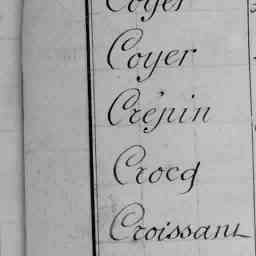 Coyer
Coyer
Crépin
Crocq
Croissant